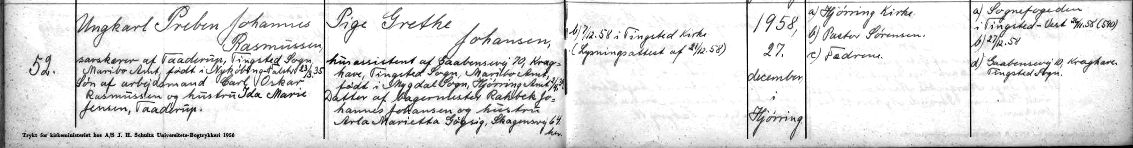 52.
Ungkarl Preben Johannes
Rasmussen,
af Taaderup, Tingsted Sogn,
Maribo Amt, født i Nykøbing Falster 23/3 35
Søn af arbejdsmand Carl Oskar
Rasmussen og hustru Ida Marie
Jensen, Taaderup.
Pige Grethe
Johansen,
husassistent af Gaabensevej 70, Krag-
have, Tingsted Sogn, Maribo Amt,
født i Sogn, Hjørring Amt,
Datter af Lagermester Rahbek Jo-
hannes Johansen og hustru
Arla Marietta Skagensvej 64
her.
b) 7/12.58 i Tingsted Kirke
(Lysningsattest af 24/12.58)
1958,
27.
december
i
Hjørring
a) Hjørring Kirke.
b) Pastor Sørensen.
c) Fædrene.
a) Sognefogeden
i Tingsted-Vest
b) 27/12.58
d) Gaabensevej 10, Kraghave,
Tingsted Sogn.
Trykt for kirkeministeriet hos A/S J. H. Schultz Universitets-Bogtrykkeri 1956